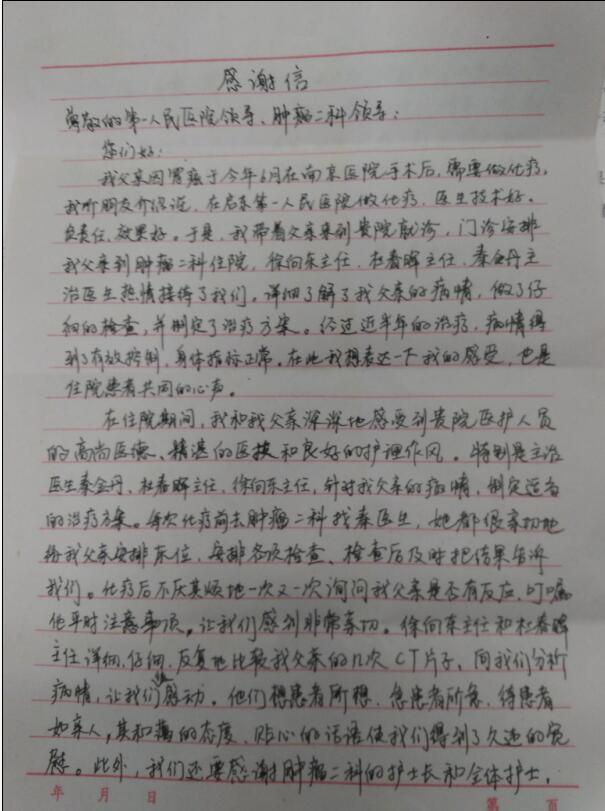 感谢信
尊敬的第一人民医院领导、肿瘤二科领导：
您们好：
我父亲因胃癌于今年6月在南京医院手术后，需要做化疗，
我听朋友介绍说，在启东第一人民医院做化疗，医生技术好、
负责任、效果好。于是，我带着父亲来到贵院就诊，门诊安排
我父亲到肿瘤二科住院，徐向东主任、杜春晖主任、秦金丹主
治医生热情接待了我们。详细了解了我父亲的病情，做了仔
细的检查，并制定了治疗方案。经过近半年的治疗，病情得
到了有效控制，身体指标正常。在此我想表达一下我的感受，也是
住院患者共同的心声。
在住院期间，我和我父亲深深地感受到贵院医护人员
的高尚医德、精湛的医技和良好的护理作风。特别是主治
医生秦金丹、杜春晖主任、徐向东主任，针对我父亲的病情，制定适合
的治疗方案。每次化疗前去肿瘤二科找秦医生，她都很亲切地
给我父亲安排床位，安排各项检查、检查后及时把结果告诉
我们。化疗后不厌其烦地一次又一次询问我父亲是否有反应，叮嘱
他平时注意事项，让我们感到非常亲切。徐向东主任和杜春晖
主任详细、仔细、反复地比较我父亲的几次CT片子，向我们分析
病情，让我们感动。他们想患者所想、急患者所急、待患者
如亲人，其和蔼的态度、贴心的话语使我们得到了久违的宽
慰。此外，我们还要感谢肿瘤二科的护士长和全体护士，
年 月 日 第 页